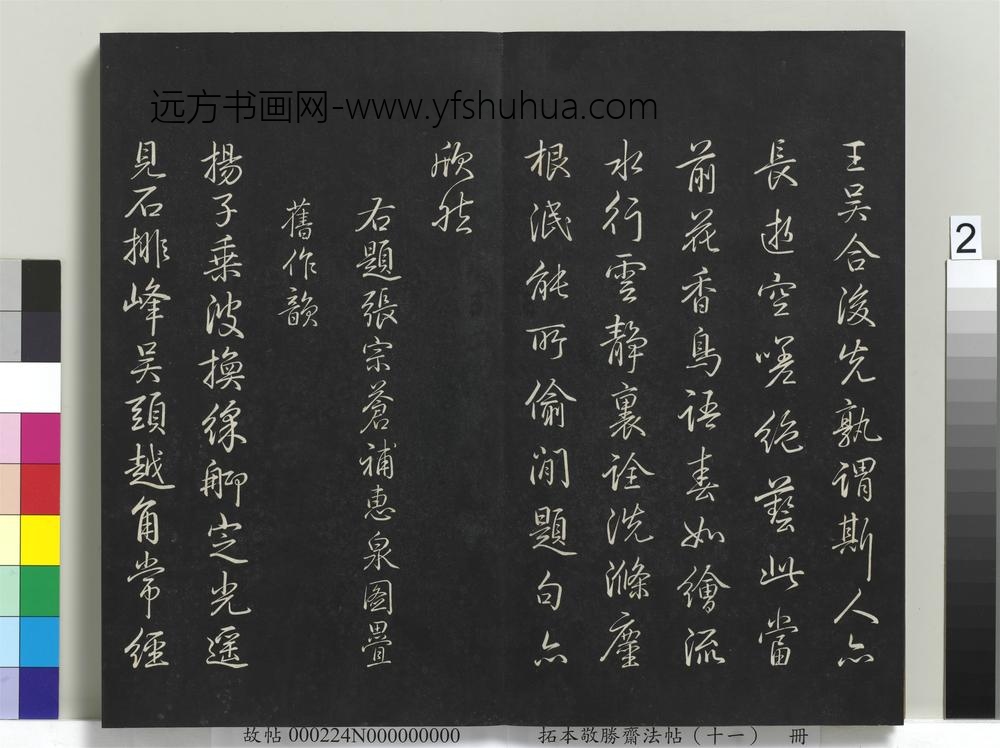 远方书画网-www.yfshuhua.com
王吴合後先孰謂斯人亦
長逝空嗟絶藝此當
前花香鳥語春如繪流
水行雲靜裏詮洗滌塵
根泯能所偷閒題句亦
欣然
右題張宗蒼補惠泉圖疊
舊作韻
揚子乗波換綵舟卬定光遥
見石排峰吴頭越角常經
2
故帖 000224N000000000
拓本敬勝齋法帖（十一） 冊